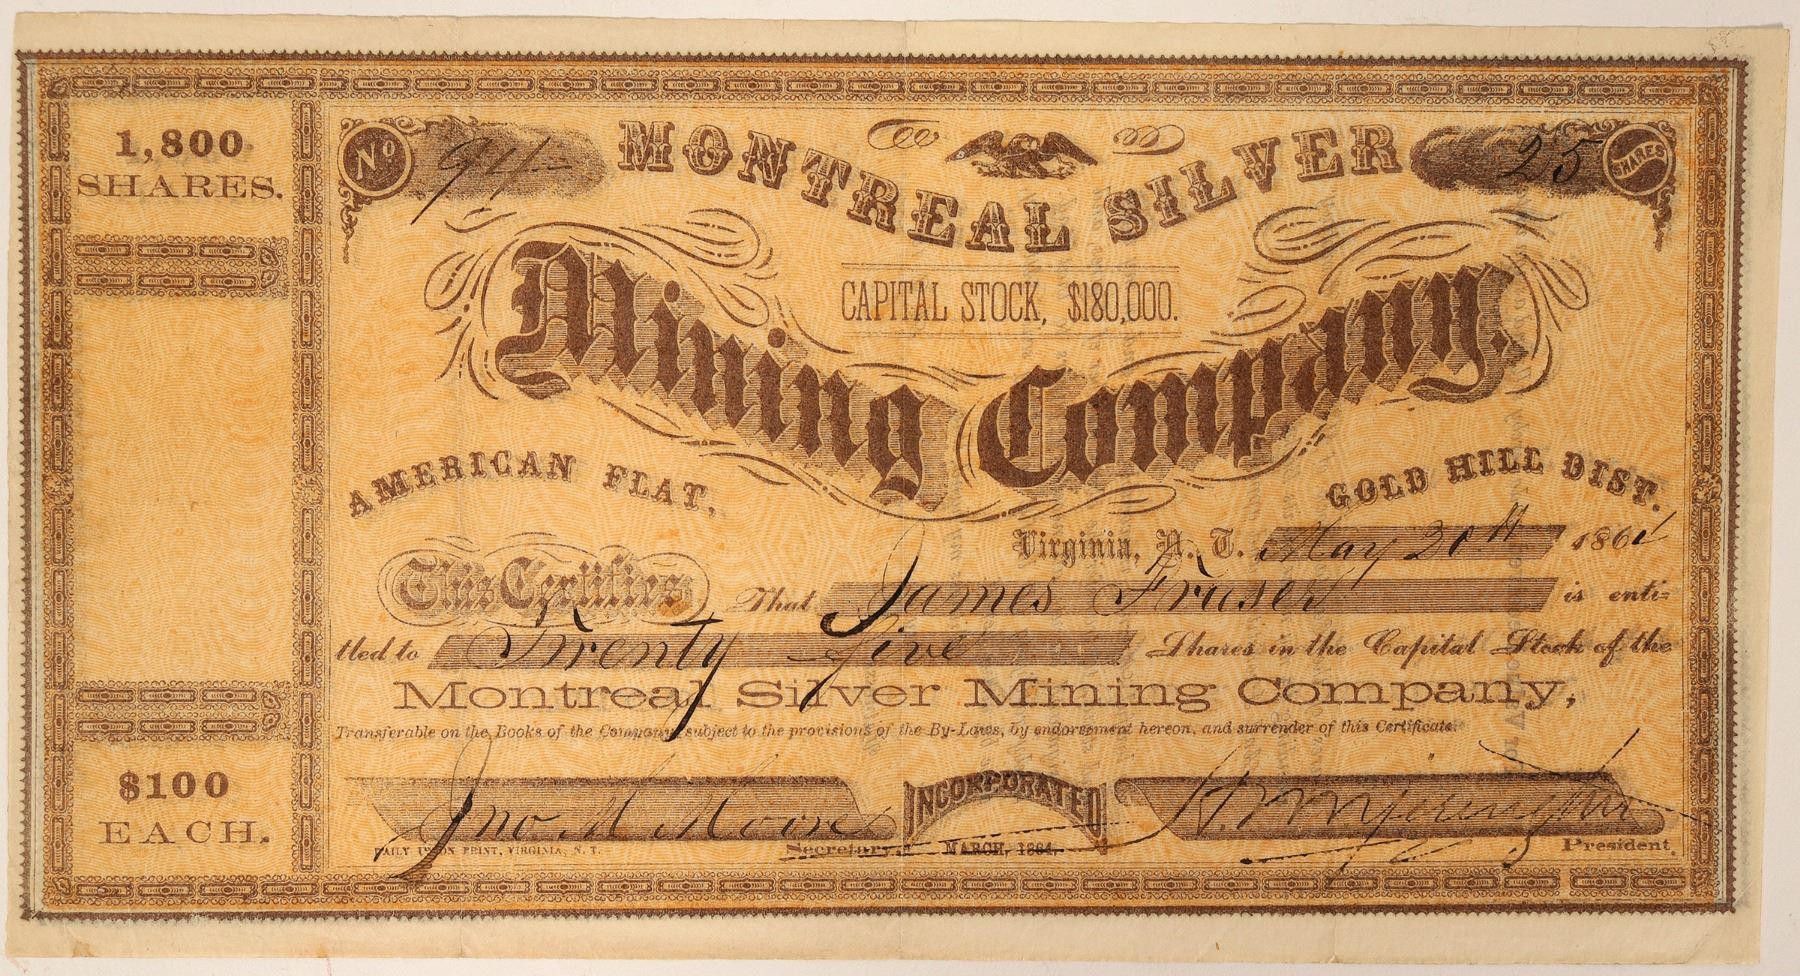 1,800
SHARES.
$100
EACH.
No 94
25 SHARES
MONTREAL SILVER
CAPITAL STOCK, $180,000.
Mining Company.
AMERICAN FLAT,
GOLD HILL DIST.
Virginia, N. T. May 20th 1864
This Certifies That James Fraser is enti=
tled to Twenty Five Shares in the Capital Stock of the
Montreal Silver Mining Company,
Transferable on the Books of the Company, subject to the provisions of the By-Laws, by endorsement hereon, and surrender of this Certificate.
Jno M Moore
INCORPORATED
DAILY UNION PRINT, VIRGINIA, N. T.
Secretary.
MARCH, 1864.
President.